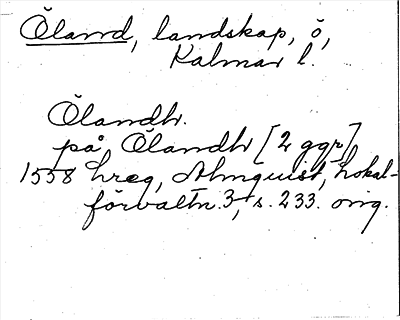 Öland, landskap, ö,
Kalmar l.
Ölandh.
på, Ölandh [2 ggr]
1558 hreg, Almquist, Lokal-
förvaltn. 3, s. 233. orig.